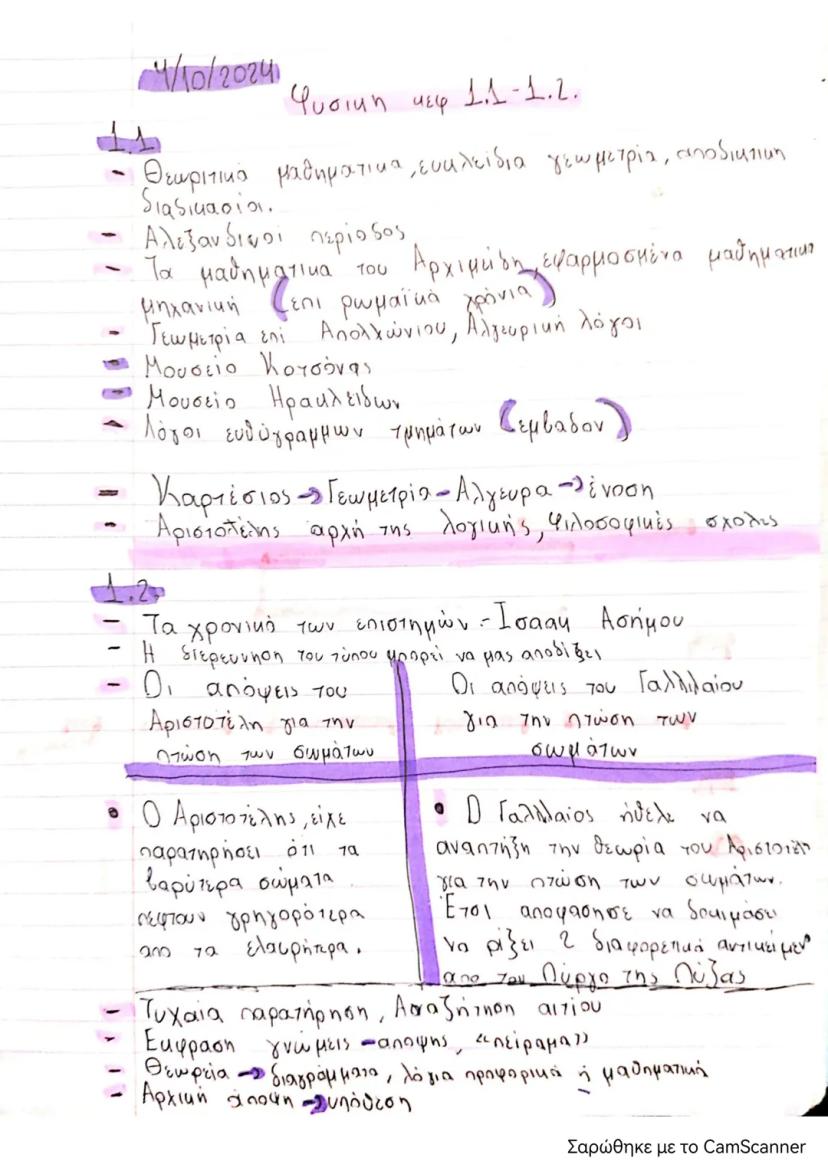 4/10/2024
Φυσικη κεφ 1.1-1.2.
1.1
- Θεωριτικά μαθηματικα, ευκλείδια γεωμετρία, αποδικτικη
διαδικασίοι.
- Αλεξανδινοί περίοδος
- Τα μαθηματικα του Αρχιμίδη, εφαρμοσμένα μαθηματικα
μηχανική (επι ρωμαϊκά χρόνια)
- Γεωμετρία επί Απολλώνιου, Αλγευρική λόγοι
- Μουσείο Κοτσάνας
- Μουσείο Ηρακλειδων
- Λόγοι ευθύγραμμων τμημάτων (εμβαδον)
- Καρτέσιος → Γεωμετρία - Αλγευρα → ένοση
- Αριστοτέλης αρχή της λογικής, φιλοσοφικές σχολες
1.2.
- Τα χρονικό των επιστημών - Ισαακ Ασήμου
- Η διερευνηση του τύπου μπορεί να μας αποδίξει
- Οι απόψεις του
Αριστοτέλη για την
πτώση των σωμάτων
Οι απόψεις του Γαλλιλαίου
για την πτώση των
σωμάτων
• Ο Αριστοτέλης, είχε
παρατηρήσει ότι τα
βαρύτερα σώματα
πέφτουν γρηγορότερα
απο τα ελαφρήτερα.
• Ο Γαλλιλαίος ήθελε να
αναπτήξη την θεωρία του Αριστοτέλη
για την πτώση των σωμάτων.
Έτσι αποφάσησε να δοκιμάσει
να ρίξει 2 διαφορετικά αντικείμεν
απο τον Πύργο της Πύζας
- Τυχαία παρατήρηση, Αναζήτηση αιτίου
- Εκφραση γνώμεις - αποψης, "πείραμα"
- Θεωρεία → διαγράμματα, λόγια προφορικά ή μαθηματική
- Αρχική άποψη → υπόθεση
Σαρώθηκε με το CamScanner